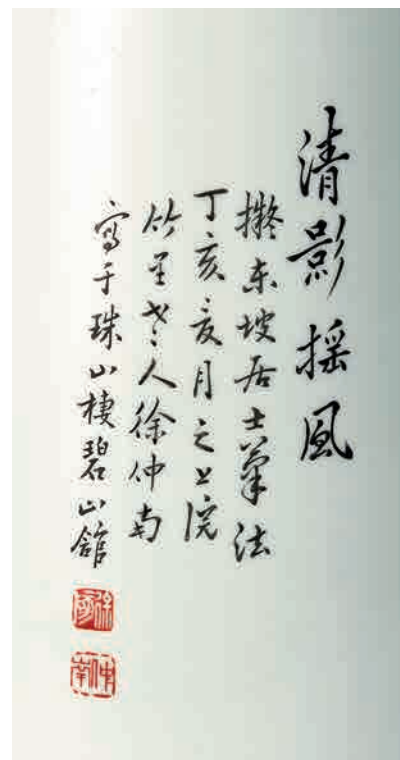 清影搖風
擬東坡居士筆法
丁亥夏月之上浣
竹里老人徐仲南
寫于珠山棲碧山館
徐
仲南